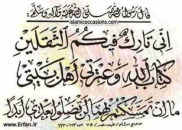 قال رسول الله صلى الله عليه
islamicoccasions.com
إني تارك فيكم الثقلين
كتاب الله وعترتي أهل بيتي
ما إن تمسكتم بهما لن تضلوا بعدي أبدا
www.Erfan.ir